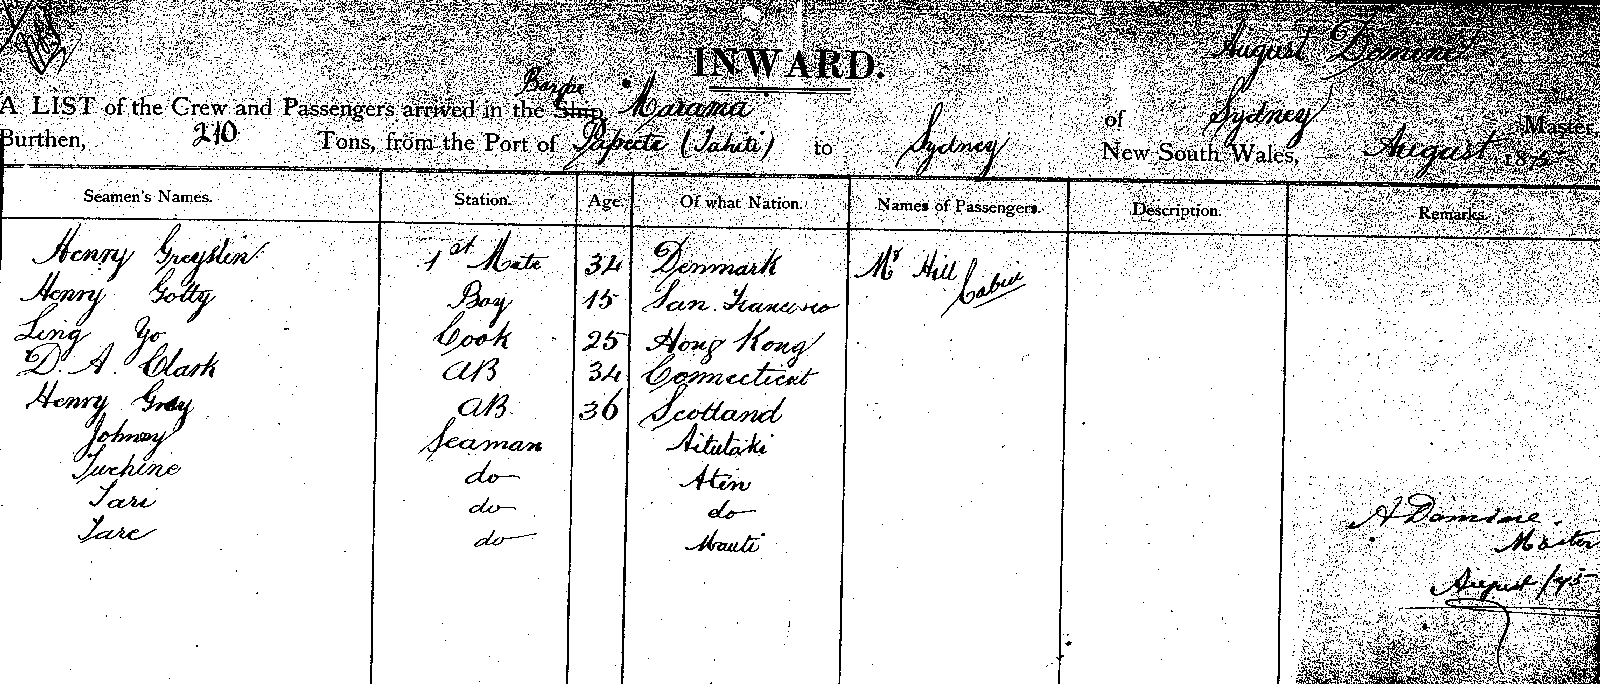 INWARD.
August Domine
Barque
A LIST of the Crew and Passengers arrived in the Ship Marama of Sydney Master,
Burthen, 210 Tons, from the Port of Papeete (Tahiti) to Sydney New South Wales, August 1875
Seamen's Names. Station. Age Of what Nation. Names of Passengers. Description. Remarks.
Henry Greystin 1st Mate 34 Denmark Mr Hill Cabin
Henry Gotty Boy 15 San Francisco
Ling Yo Cook 25 Hong Kong
D. A. Clark AB 34 Connecticut
Henry Gray AB 36 Scotland
Johnny Seaman Aitutaki
Tuchine do Atin
Tari do do
Tare do Mauti
A Domine.
Master
August /75